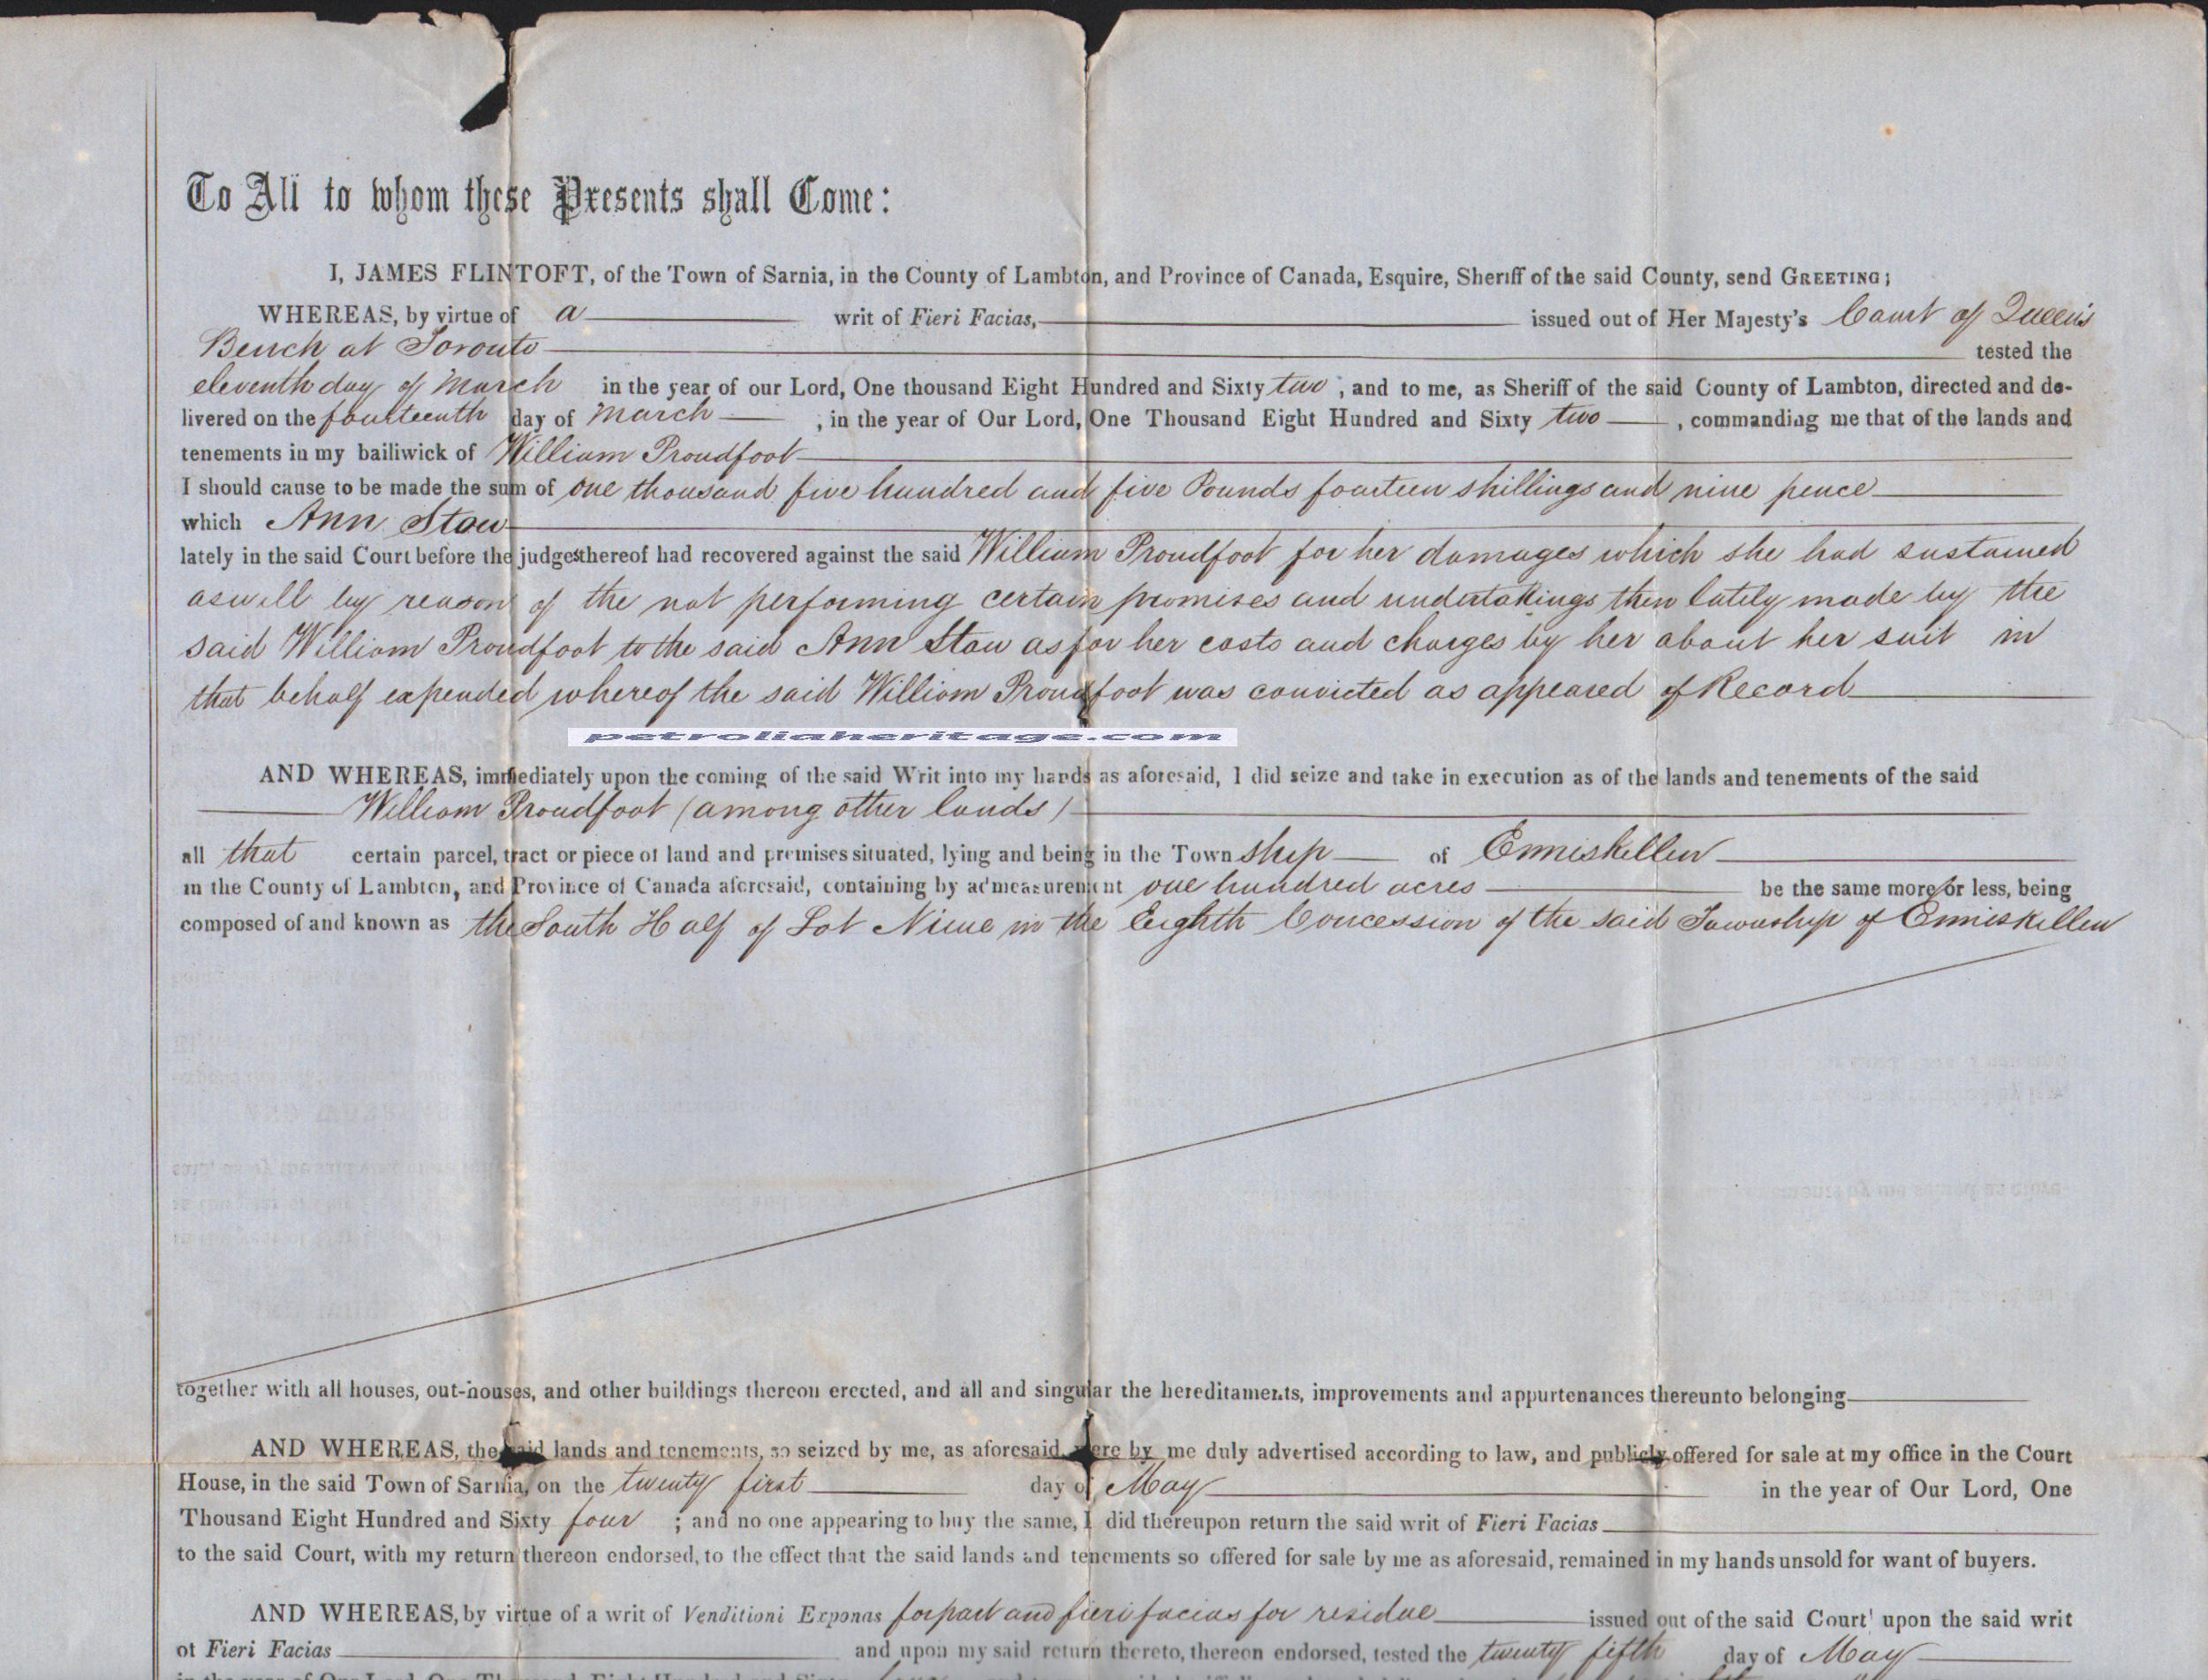 To All to whom these Presents shall Come:
I, JAMES FLINTOFT, of the Town of Sarnia, in the County of Lambton, and Province of Canada, Esquire, Sheriff of the said County, send GREETING;
WHEREAS, by virtue of a writ of Fieri Facias, issued out of Her Majesty's Court of Queen's
Bench at Toronto tested the
eleventh day of March in the year of our Lord, One thousand Eight Hundred and Sixty two, and to me, as Sheriff of the said County of Lambton, directed and de-
livered on the fourteenth day of March, in the year of Our Lord, One Thousand Eight Hundred and Sixty two, commanding me that of the lands and
tenements in my bailiwick of William Proudfoot
I should cause to be made the sum of one thousand five hundred and five Pounds fourteen shillings and nine pence
which Ann Stow
lately in the said Court before the judges thereof had recovered against the said William Proudfoot for her damages which she had sustained
aswell by reason of the not performing certain promises and undertakings then lately made by the
said William Proudfoot to the said Ann Stow as for her costs and charges by her about her suit in
that behalf expended whereof the said William Proudfoot was convicted as appeared of Record
petroliaheritage.com
AND WHEREAS, immediately upon the coming of the said Writ into my hands as aforesaid, I did seize and take in execution as of the lands and tenements of the said
William Proudfoot (among other lands)
all that certain parcel, tract or piece of land and premises situated, lying and being in the Township of Enniskillen
in the County of Lambton, and Province of Canada aforesaid, containing by admeasurement one hundred acres be the same more or less, being
composed of and known as the South Half of Lot Nine in the Eighth Concession of the said Township of Enniskillen
together with all houses, out-houses, and other buildings thereon erected, and all and singular the hereditaments, improvements and appurtenances thereunto belonging
AND WHEREAS, the said lands and tenements, so seized by me, as aforesaid, were by me duly advertised according to law, and publicly offered for sale at my office in the Court
House, in the said Town of Sarnia, on the twenty first day of May in the year of Our Lord, One
Thousand Eight Hundred and Sixty four; and no one appearing to buy the same, I did thereupon return the said writ of Fieri Facias
to the said Court, with my return thereon endorsed, to the effect that the said lands and tenements so offered for sale by me as aforesaid, remained in my hands unsold for want of buyers.
AND WHEREAS, by virtue of a writ of Venditioni Exponas for part and fieri facias for residue issued out of the said Court upon the said writ
of Fieri Facias and upon my said return thereto, thereon endorsed, tested the twenty fifth day of May